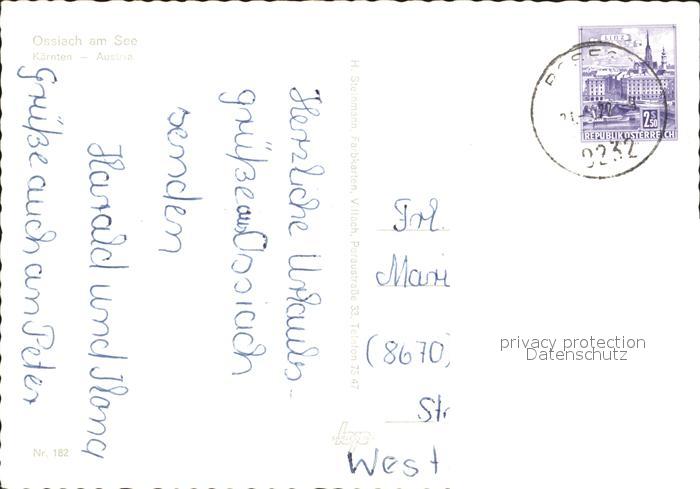 Ossiach am See
Kärnten — Austria
Herzliche Urlaubs-
grüße aus Ossiach
senden
Harald und Ilona
Grüße auch an Peter
Nr. 182
H. Steinmann, Farbkarten, Villach, Peraustraße 33, Telefon 75 47
LINZ
2S50
REPUBLIK ÖSTERREICH
9232
Frl.
Mari
(8670)
Str
West
privacy protection
Datenschutz